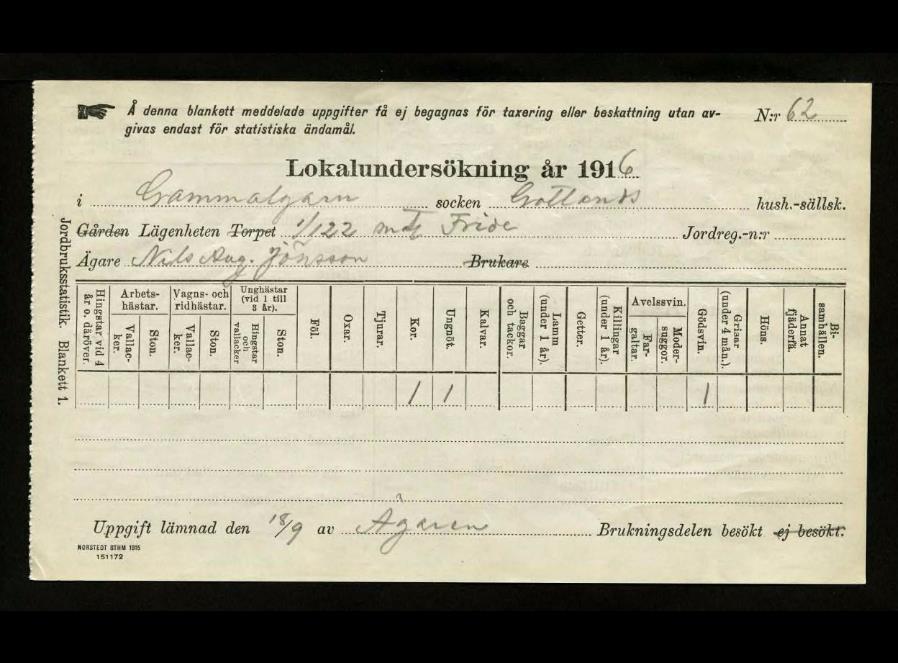 Å denna blankett meddelade uppgifter få ej begagnas för taxering eller beskattning utan av-
givas endast för statistiska ändamål.
N:r 62
Lokalundersökning år 1916
i Gammalgarn socken Gottlands hush.-sällsk.
Gården Lägenheten Torpet 1/122 mtl Fride Jordreg.-n:r
Ägare Nils Aug. Jönsson Brukare
Jordbruksstatistik. Blankett 1.
Hingstar vid 4 år o. däröver.
Arbets-hästar.
Vallac-ker.
Ston.
Vagns- och ridhästar.
Vallac-ker.
Ston.
Unghästar (vid 1 till 3 år).
Hingstar och vallacker
Ston.
Föl.
Oxar.
Tjurar.
Kor.
Ungnöt.
Kalvar.
Baggar och tackor.
Lamm (under 1 år).
Getter.
Killingar (under 1 år).
Avelssvin.
Far-galtar.
Moder-suggor.
Gödsvin.
Grisar (under 4 mån.).
Höns.
Annat fjäderfä.
Bi-samhällen.
1 1 1
Uppgift lämnad den 18/9 av Ägaren Brukningsdelen besökt ej besökt.
NORSTEDT STHM 1915
151172